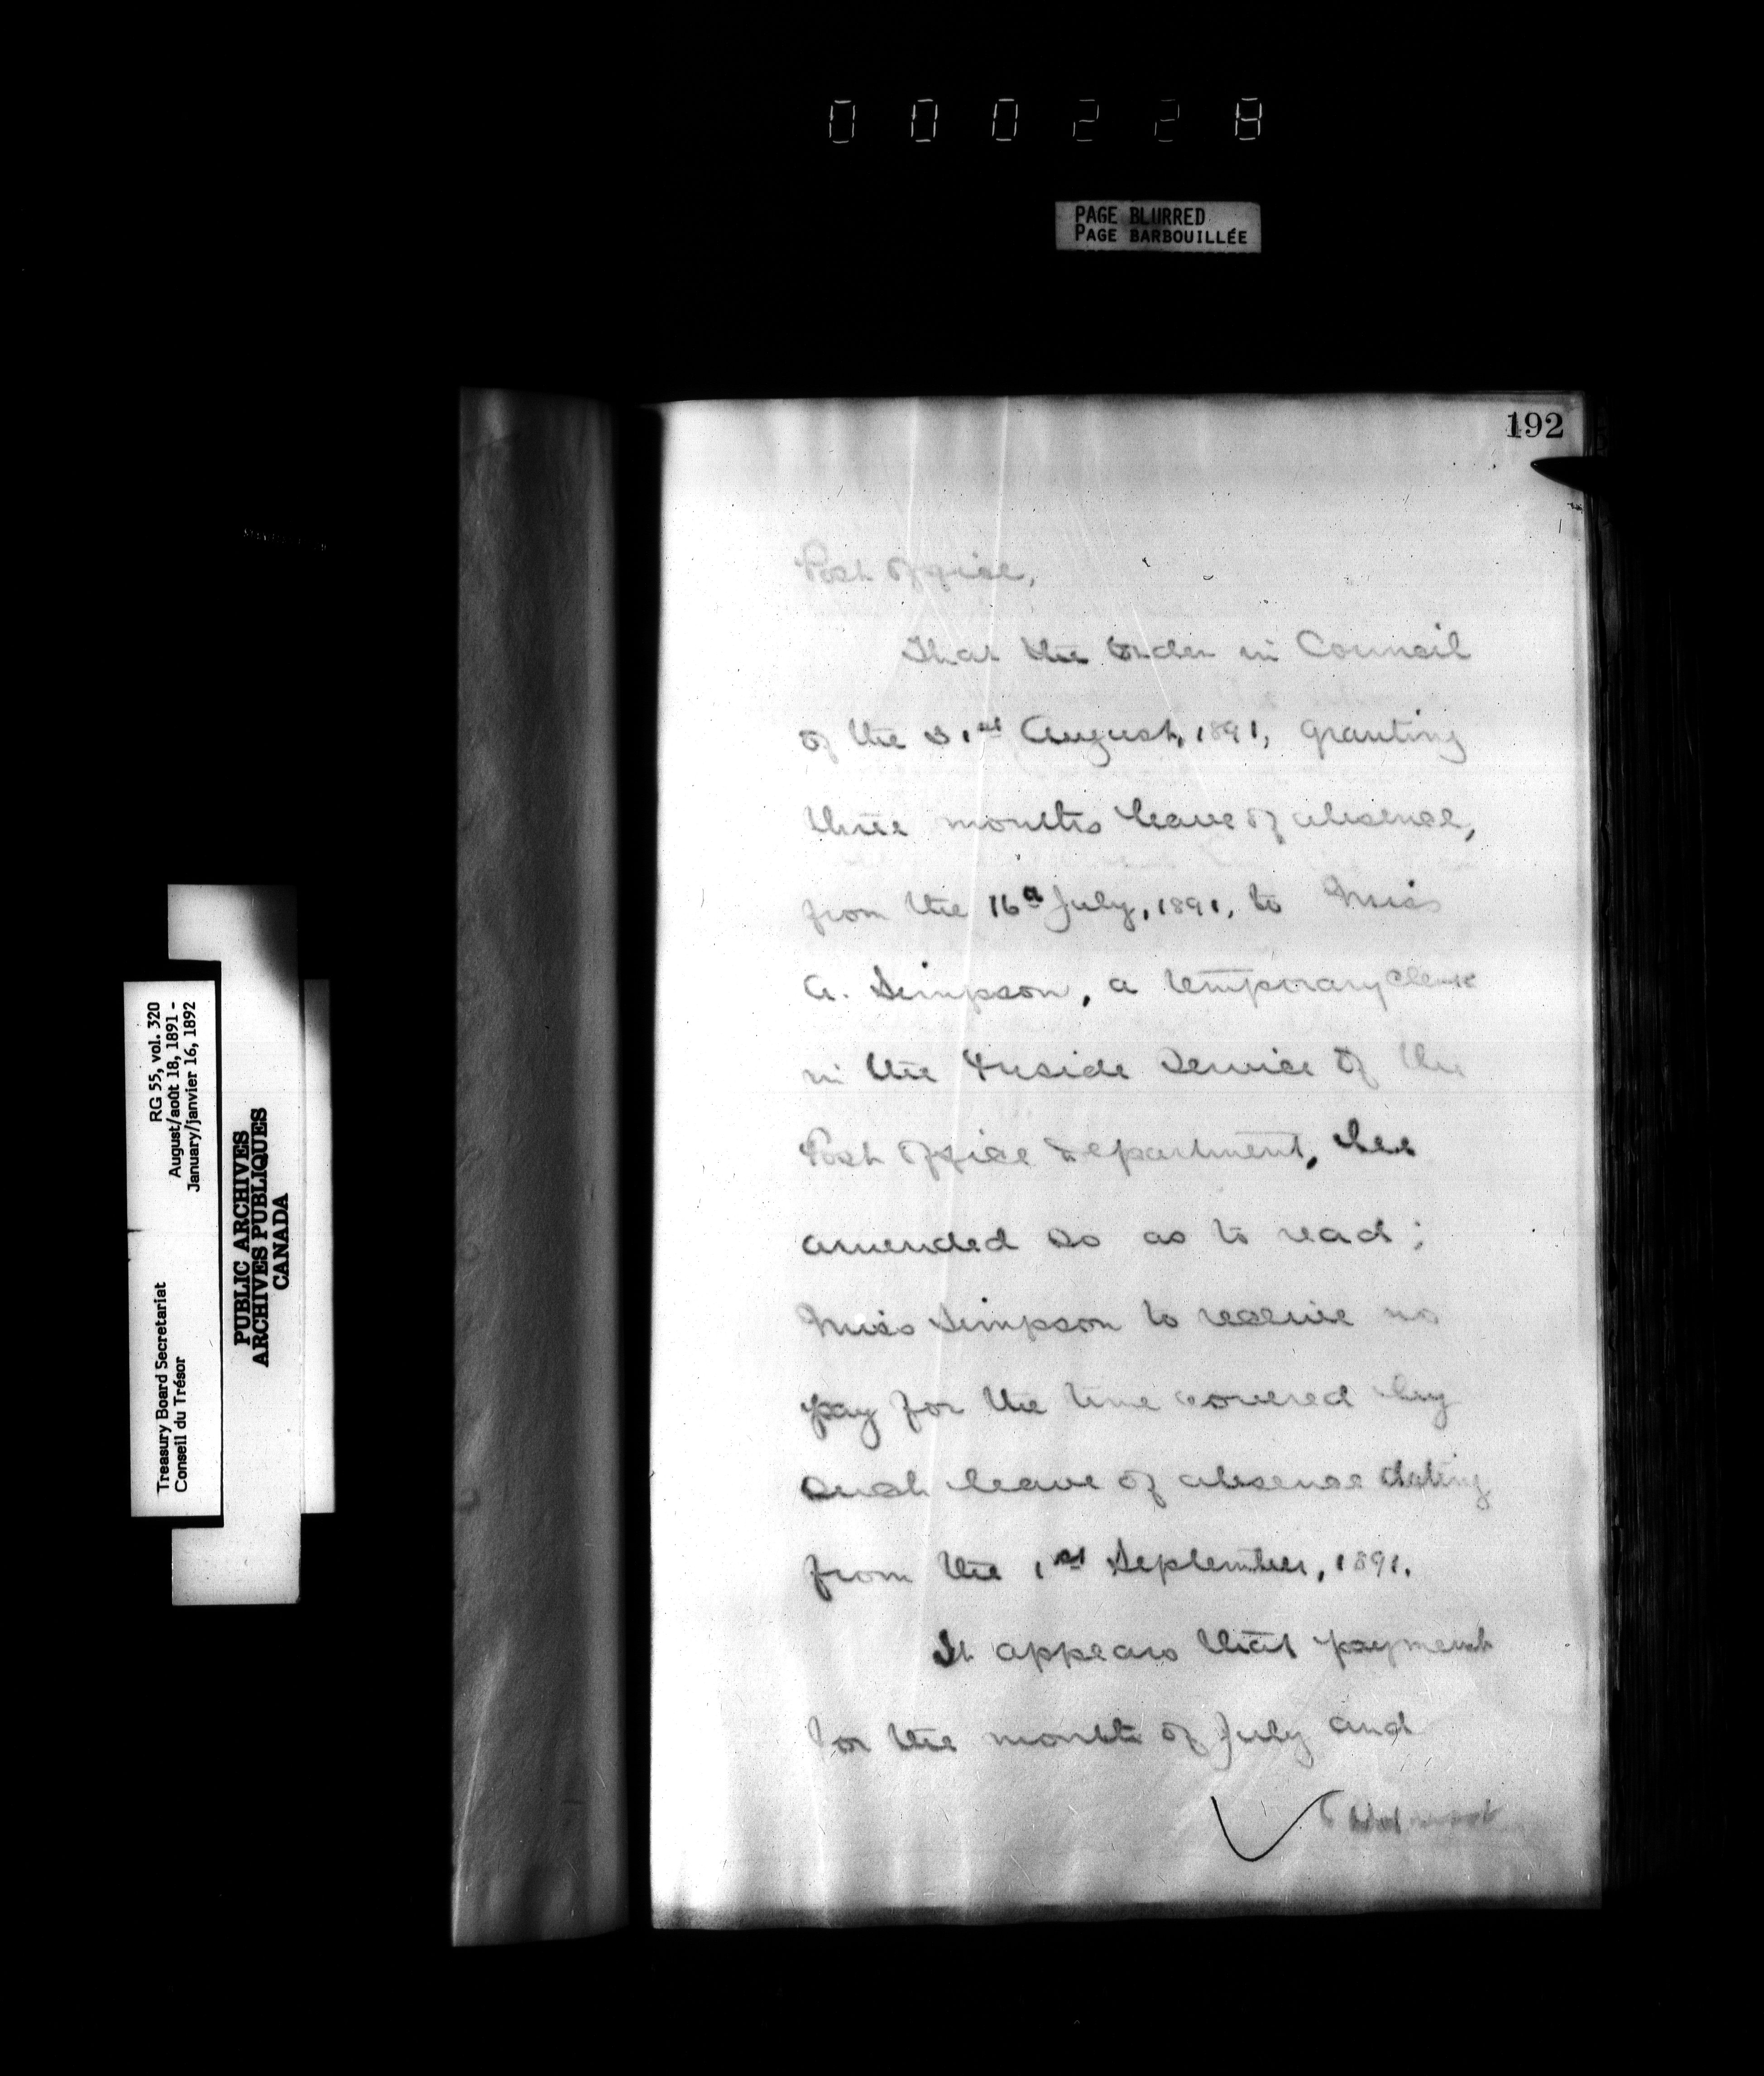 000228
PAGE BLURRED
PAGE BARBOUILLÉE
192
Post Office,
That the Order in Council
of the 31st August, 1891, granting
three months leave of absence,
from the 16th July, 1891, to Miss
A. Simpson, a temporary Clerk
in the Inside Service of the
Post Office Department, be
amended so as to read;
Miss Simpson to receive no
pay for the time covered by
such leave of absence dating
from the 1st September, 1891.
It appears that payment
for the month of July and
RG 55, vol. 320
August/août 18, 1891 -
January/janvier 16, 1892
Treasury Board Secretariat
Conseil du Trésor
PUBLIC ARCHIVES
ARCHIVES PUBLIQUES
CANADA